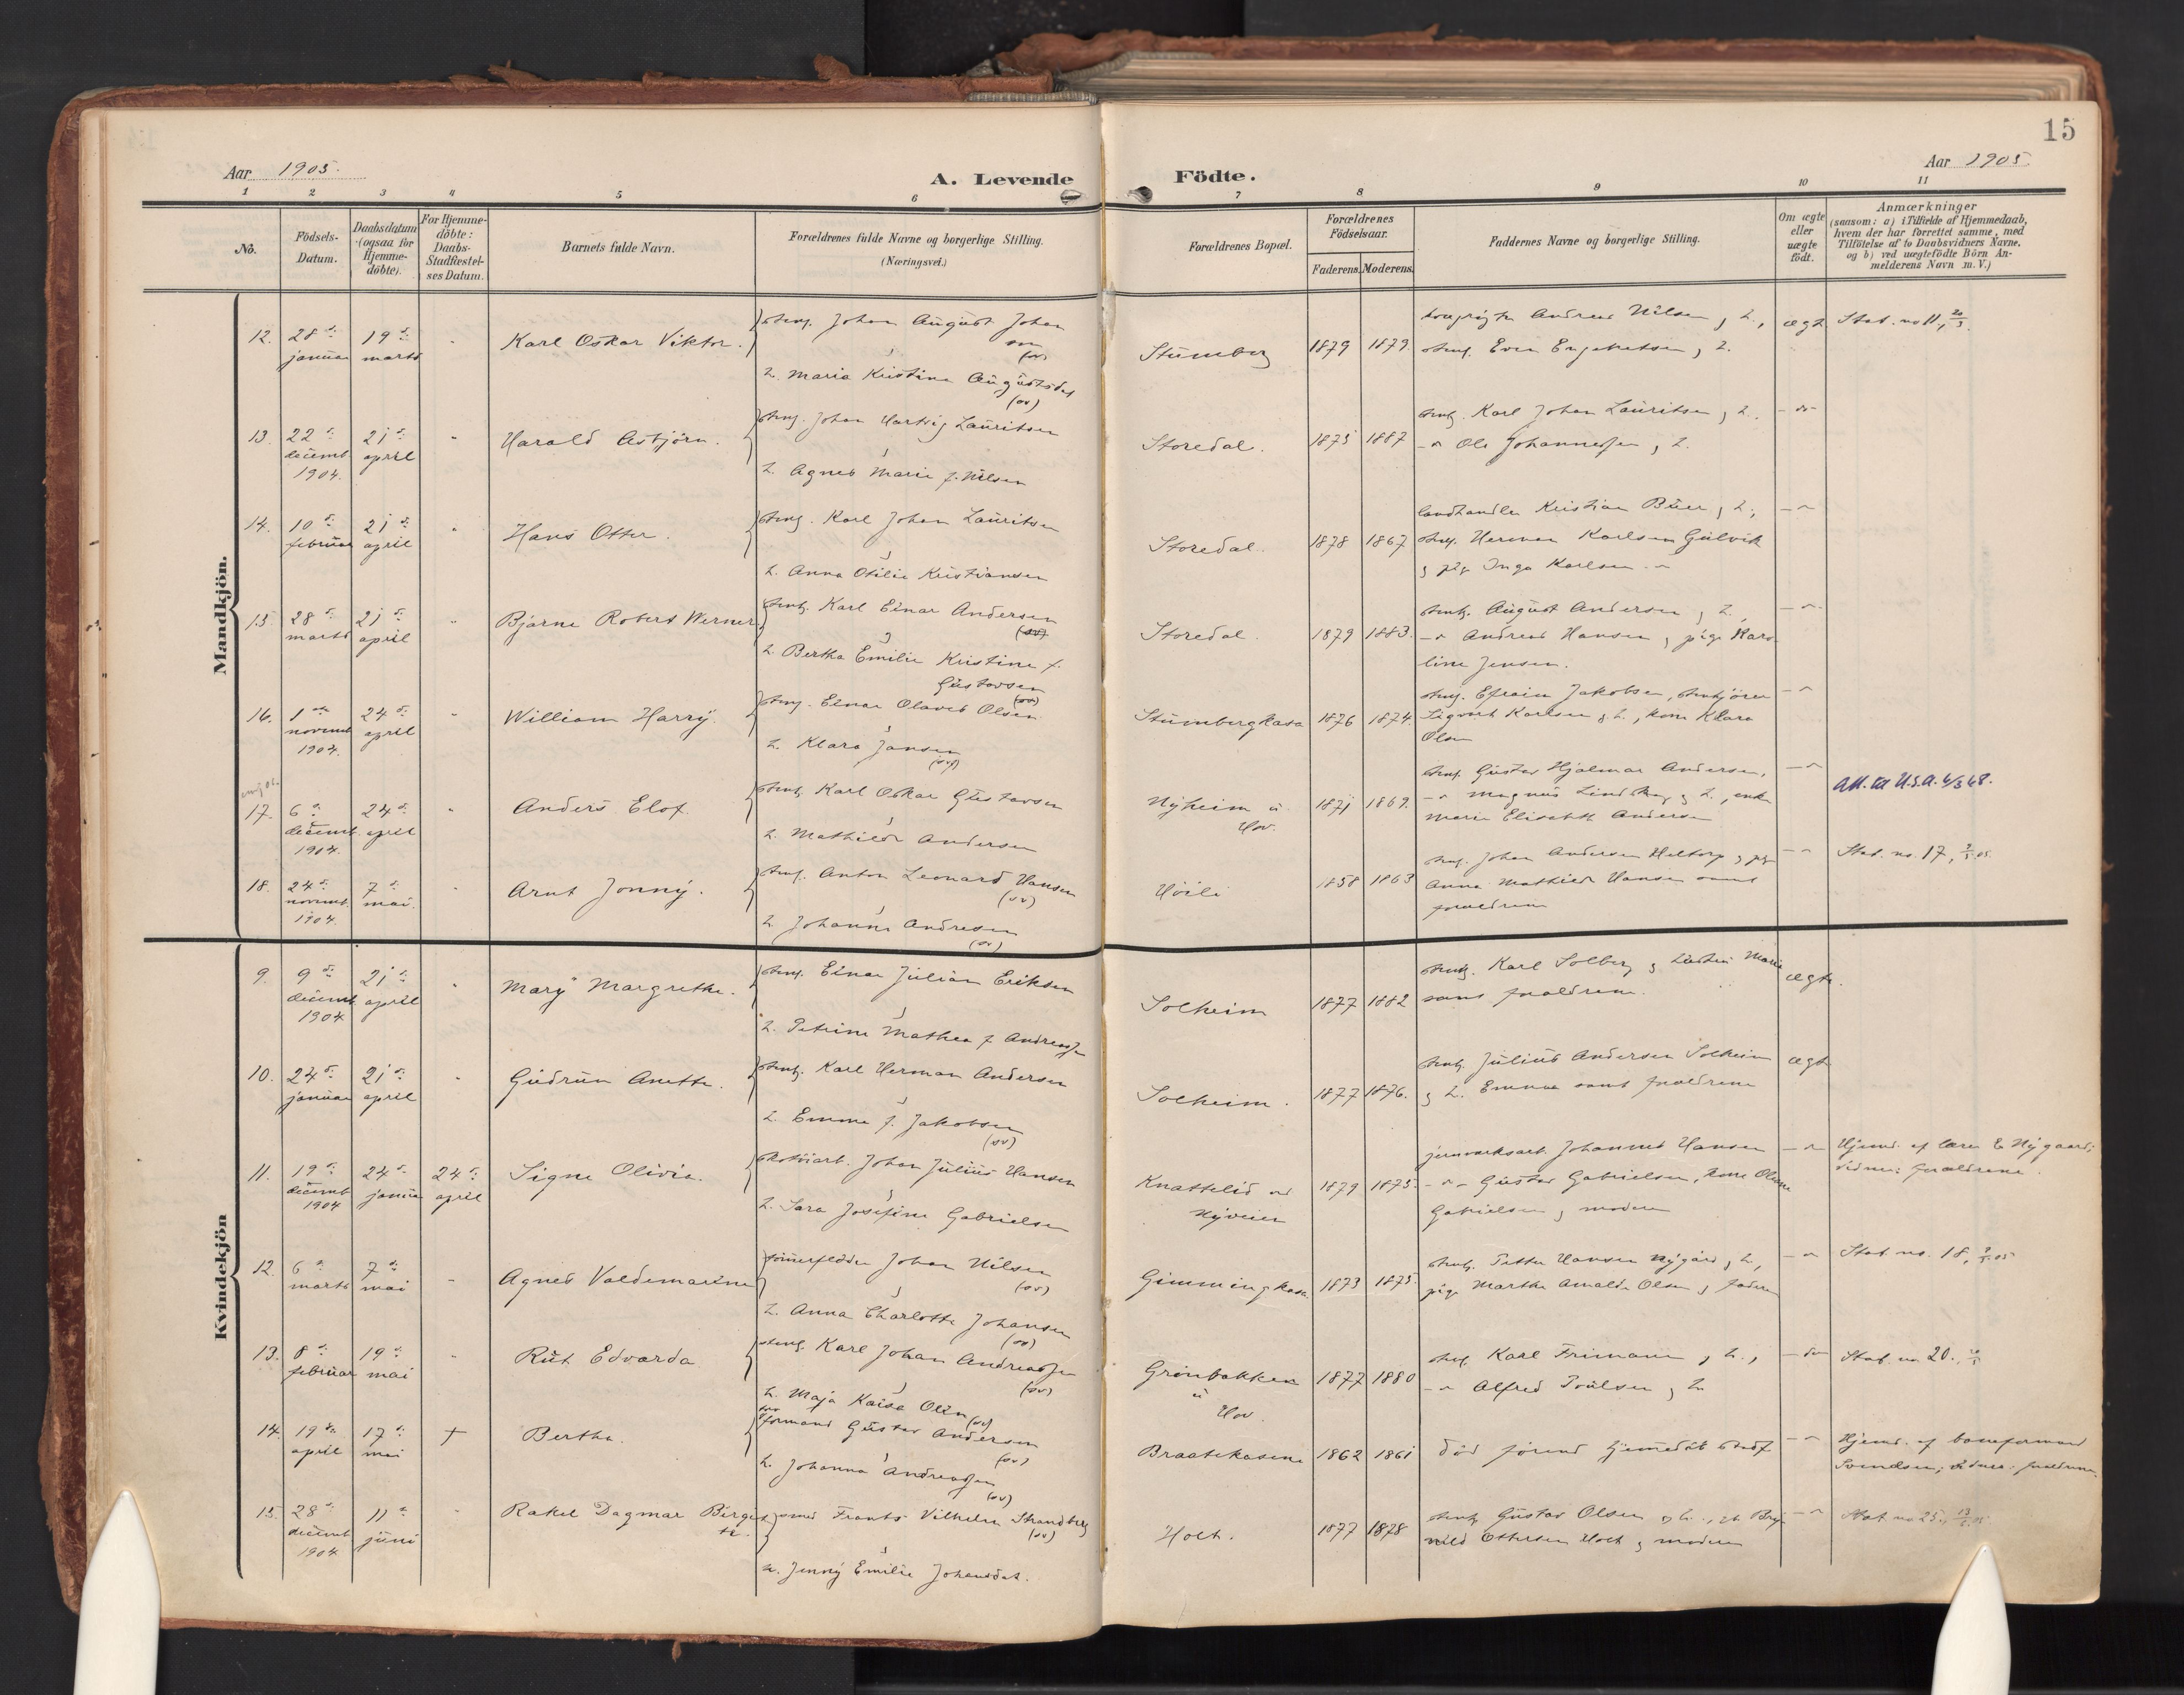 15
Aar 1905.
A. Levende
Födte.
Aar 1905
1 2 3 4 5 6 7 8 9 10 11
No.
Födsels-
Datum.
Daabsdatum
(ogsaa for
Hjemme-
döbte).
For Hjemme-
döbte:
Daabs-
Stadfæstel-
ses Datum.
Barnets fulde Navn.
Forældrenes fulde Navne og borgerlige Stilling.
(Næringsvei.)
Forældrenes Bopæl.
Forældrenes
Födselsaar.
Faderens. Moderens.
Faddernes Navne og borgerlige Stilling.
Om ægte
eller
uægte
födt.
Anmærkninger
(saasom: a) i Tilfælde af Hjemmedaab,
hvem der har forrettet samme, med
Tilföielse af to Daabsvidners Navne,
og b) ved uægtefödte Börn An-
melderens Navn m. V.)
Mandkjön.
12. 28de januar 19de marts " Karl Oskar Viktor.
Johan August Johan
sen
(sv)
h. Maria Kristine Augustsdat
(sv)
Stumberg 1879 1879.
Andreas Nilsen & h.,
Even Engebretsen & h.
ægt.
Stat. no 11, 20/3
13. 22de decemb. 1904. 21de april " Harald Asbjörn.
Johan Hartvig Lauritsen
&
h. Agnes Marie f. Nilsen
Storedal. 1875 1887
Karl Johan Lauritsen & h.
-"- Ole Johannessen & h.
-do-
14. 10de februar 21de april " Hans Otter.
Karl Johan Lauritsen
&
h. Anna Otilie Kristiansen
Storedal. 1878 1867
landhandler Kristian Buer & h.,
Herman Karlsen Gulvik
& pige Inga Karlsen
-"-
15. 28de marts 21de april " Bjarne Robert Werner
Karl Einar Andersen
(sv)
&
h. Bertha Emilie Kristine f.
Gustavsen
(sv)
Storedal. 1879 1883.
August Andersen & h.,
-"- Andreas Hansen & pige Karo-
line Jensen.
-"-
16. 1ste novemb. 1904. 24de april " William Harry.
Einar Olaves Olsen
&
h. Klara Jansen
(sv)
Stumbergkasa 1876 1874.
Efraim Jakobsen,
Sigvart Karlsen & h., kone Klara
Olsen
-"-
17. 6te decemb. 1904. 24de april " Anders Elof.
Karl Oskar Gustavsen
&
h. Mathilde Andersen
Nyheim u.
Hov. 1871 1869.
Gustav Hjalmar Andersen,
-"- Magnus & h., enke
Marie Elisabeth Andersen
-"-
Att. til U.S.A. 4/3 68.
18. 24de novemb. 1904. 7de mai " Arnt Jonny.
Anton Leonard Hansen
(sv)
&
h. Johanne Andresen
(sv)
Höili 1858 1863
Johan Andersen Heltorp & pige
Anna Mathilde Hansen samt
forældrene
-"-
Stat. no. 17, 9/5 05.
Kvindekjön
9. 9de decemb. 1904 21de april " Mary Margrethe.
Einar Julian Eriksen
&
h. Petrine Mathea f. Andreassen
Solheim 1877 1882
Karl Solberg & hustru Marie
samt forældrene.
ægte.
10. 24de januar 21de april " Gudrun Anette.
Karl Herman Andersen
&
h. Emma f. Jakobsen
(sv)
Solheim. 1877 1876.
Julius Andersen Solheim
& h. Emma samt forældrene
ægte
11. 19de decemb. 1904 24de januar 24de april Signe Olivia.
Johan Julius Hansen
&
h. Sara Josefine Gabrielsen
Knattelid ved
Nyveien 1879 1875.
jernverksarb. Johannes Hansen
-"- Gustav Gabrielsen, kone
Gabrielsen & moderen
-"-
Hjemd. af lærer E. Nygaard;
vidner: forældrene.
12. 6te marts 7de mai " Agnes Valdemarine
tömmerflöder Johan Nilsen
(sv)
&
h. Anna Charlotte Johansen
(sv)
Gimmingkasa. 1873 1875.
Petter Hansen Nygård & h.,
pige Marthe Amalda Olsen & faderen
-"-
Stat. no. 18, 9/5 05
13. 8de februar 19de mai " Rut Edvarda
Karl Johan Andreassen
(sv)
&
h. Maja Kaisa Olin
(sv)
Grönbakken
u
Hov. 1877 1880
Karl Frimann & h.,
-"- Alfred Poulsen & h.
-do-
Stat. no 20.,
14. 19de april 17de mai † Bertha.
formand Gustav Andersen
(sv)
&
h. Johanna Andreassen
(sv)
Braatekasene 1862 1861
död förend hjemmedåb stadf.
-"-
Hjemd. af baneformand
Svendsen; vidner: forældrene.
15. 28de decemb. 1904 11te juni " Rakel Dagmar Birgit-
te.
smed Frants Vilhelm Strandberg
(sv)
&
h. Jenny Emilie Johansdat.
Holt. 1877 1878
Gustav Olsen & h.,
Ottersen Holt & moderen
-"-
Stat. no 25., 13/6 05